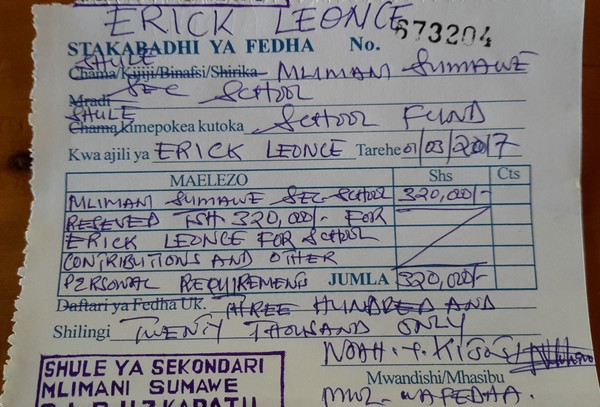 ERICK LEONCE
STAKABADHI YA FEDHA No. 673204
SHULE
Chama/Kijiji/Binafsi/Shirika MLIMANI SUMAWE
Mradi SEC SCHOOL
SHULE
Chama kimepokea kutoka SCHOOL FUND
Kwa ajili ya ERICK LEONCE Tarehe 01/03/2017
MAELEZO Shs Cts
MLIMANI SUMAWE SEC SCHOOL 320,000/-
RESEVED TSH 320,000/- FOR
ERICK LEONCE FOR SCHOOL
CONTRIBUTIONS AND OTHER
PERSONAL REQUIREMENTS JUMLA 320,000/-
Daftari ya Fedha UK. THREE HUNDRED AND
Shilingi TWENTY THOUSAND ONLY
NOAH. Y.
Mwandishi/Mhasibu
MWL. WA FEDHA.
SHULE YA SEKONDARI
MLIMANI SUMAWE
KARATU